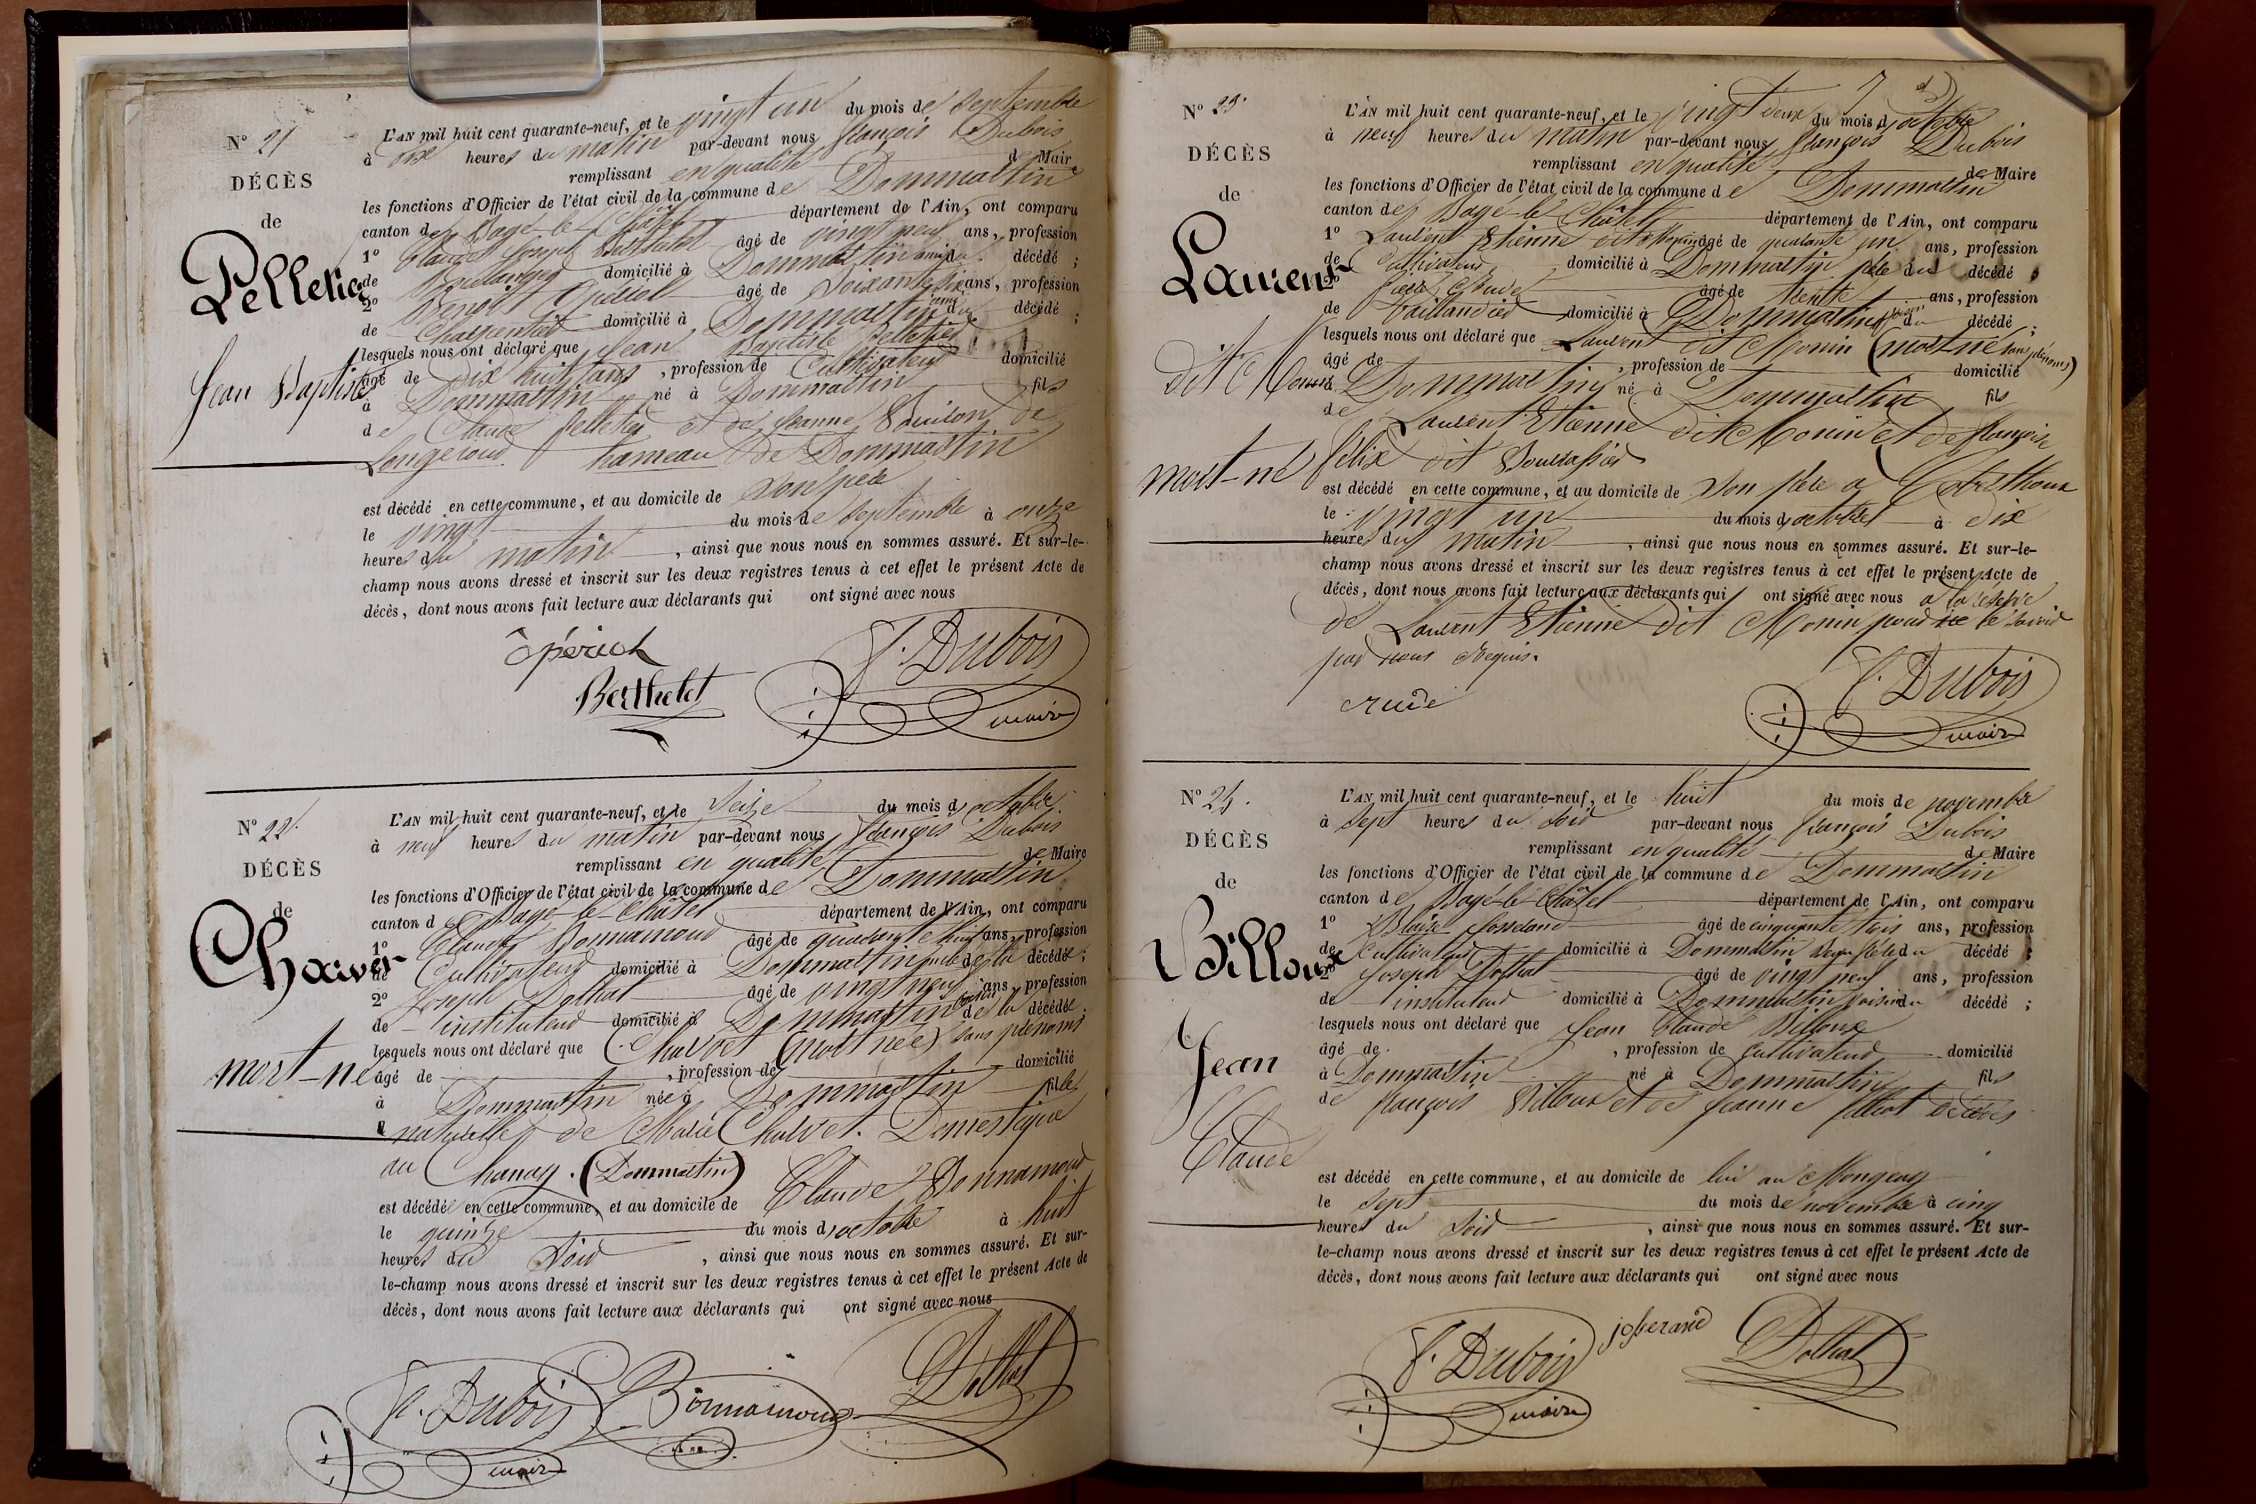 N° 21
DÉCÈS
de
Pelletier
Jean Baptiste
L'AN mil huit cent quarante-neuf, et le vingt un du mois de Septembre
à dix heures du matin par-devant nous françois Dubois
remplissant en qualité de Maire
les fonctions d'Officier de l'état civil de la commune de Dommartin
canton de Bagé-le-Châtel département de l'Ain, ont comparu
1° Claude Joseph Berthelet âgé de vingt neuf ans, profession
de domicilié à Dommartin ami du décédé ;
2° Benoit âgé de Soixante dix ans, profession
de Charpentier domicilié à Dommartin ami du décédé ;
lesquels nous ont déclaré que Jean Baptiste Pelletier
âgé de Dix huit ans, profession de Cultivateur domicilié
à Dommartin né à Dommartin fils
de Claude Pelletier et de Jeanne de
Longeroud hameau de Dommartin
est décédé en cette commune, et au domicile de Son père
le vingt du mois de Septembre à onze
heures du matin, ainsi que nous nous en sommes assuré. Et sur-le-
champ nous avons dressé et inscrit sur les deux registres tenus à cet effet le présent Acte de
décès, dont nous avons fait lecture aux déclarants qui ont signé avec nous
Berthelet
f. Dubois
maire
N° 22.
DÉCÈS
de
Charvet
mort-né
L'AN mil huit cent quarante-neuf, et le Seize du mois d'octobre
à neuf heures du matin par-devant nous françois Dubois
remplissant en qualité de Maire
les fonctions d'Officier de l'état civil de la commune de Dommartin
canton de Bagé-le-Châtel département de l'Ain, ont comparu
1° Claude Bonnamour âgé de quarante huit ans, profession
de Cultivateur domicilié à Dommartin de la décédée ;
2° Joseph Dothal âgé de vingt neuf ans, profession
de instituteur domicilié à Dommartin voisin de la décédée ;
lesquels nous ont déclaré que Charvet (mort née) sans prénoms
âgé de , profession de domicilié
à Dommartin née à Dommartin fille
naturelle de Marie Charvet. Domestique
au Chanay. (Dommartin)
est décédée en cette commune, et au domicile de Claude Bonnamour
le quinze du mois d'octobre à huit
heures du Soir, ainsi que nous nous en sommes assuré. Et sur-
le-champ nous avons dressé et inscrit sur les deux registres tenus à cet effet le présent Acte de
décès, dont nous avons fait lecture aux déclarants qui ont signé avec nous
f. Dubois
maire
Bonnamour
Dothal
N° 23.
DÉCÈS
de
Laurent
dit Monin
mort-né
L'AN mil huit cent quarante-neuf, et le vingt deux du mois d'octobre
à neuf heures du matin par-devant nous françois Dubois
remplissant en qualité de Maire
les fonctions d'Officier de l'état civil de la commune de Dommartin
canton de Bagé-le-Châtel département de l'Ain, ont comparu
1° Laurent Etienne dit Monin âgé de quarante un ans, profession
de Cultivateur domicilié à Dommartin père du décédé ;
2° âgé de trente ans, profession
de taillandier domicilié à Dommartin voisin du décédé ;
lesquels nous ont déclaré que Laurent dit Monin (mort né sans prénoms)
âgé de , profession de domicilié
à Dommartin né à Dommartin fils
de Laurent Etienne dit Monin et de françoise
félix dit
est décédé en cette commune, et au domicile de Son père à
le vingt un du mois d'octobre à dix
heures du matin, ainsi que nous nous en sommes assuré. Et sur-le-
champ nous avons dressé et inscrit sur les deux registres tenus à cet effet le présent Acte de
décès, dont nous avons fait lecture aux déclarants qui ont signé avec nous à la réserve
de Laurent Etienne dit Monin pour ne le savoir
par nous Requis.
f. Dubois
maire
N° 24.
DÉCÈS
de
Billoux
Jean
Claude
L'AN mil huit cent quarante-neuf, et le huit du mois de novembre
à Sept heures du Soir par-devant nous françois Dubois
remplissant en qualité de Maire
les fonctions d'Officier de l'état civil de la commune de Dommartin
canton de Bagé-le-Châtel département de l'Ain, ont comparu
1° Blaise Josserand âgé de cinquante trois ans, profession
de Cultivateur domicilié à Dommartin beau frère du décédé ;
2° Joseph Dothal âgé de vingt neuf ans, profession
de instituteur domicilié à Dommartin voisin du décédé ;
lesquels nous ont déclaré que Jean Claude Billoux
âgé de , profession de Cultivateur domicilié
à Dommartin né à Dommartin fils
de françois Billoux et de Jeanne décédés
est décédé en cette commune, et au domicile de lui au Mongeay
le Sept du mois de novembre à cinq
heures du Soir, ainsi que nous nous en sommes assuré. Et sur-
le-champ nous avons dressé et inscrit sur les deux registres tenus à cet effet le présent Acte de
décès, dont nous avons fait lecture aux déclarants qui ont signé avec nous
f. Dubois
maire
josserand
Dothal